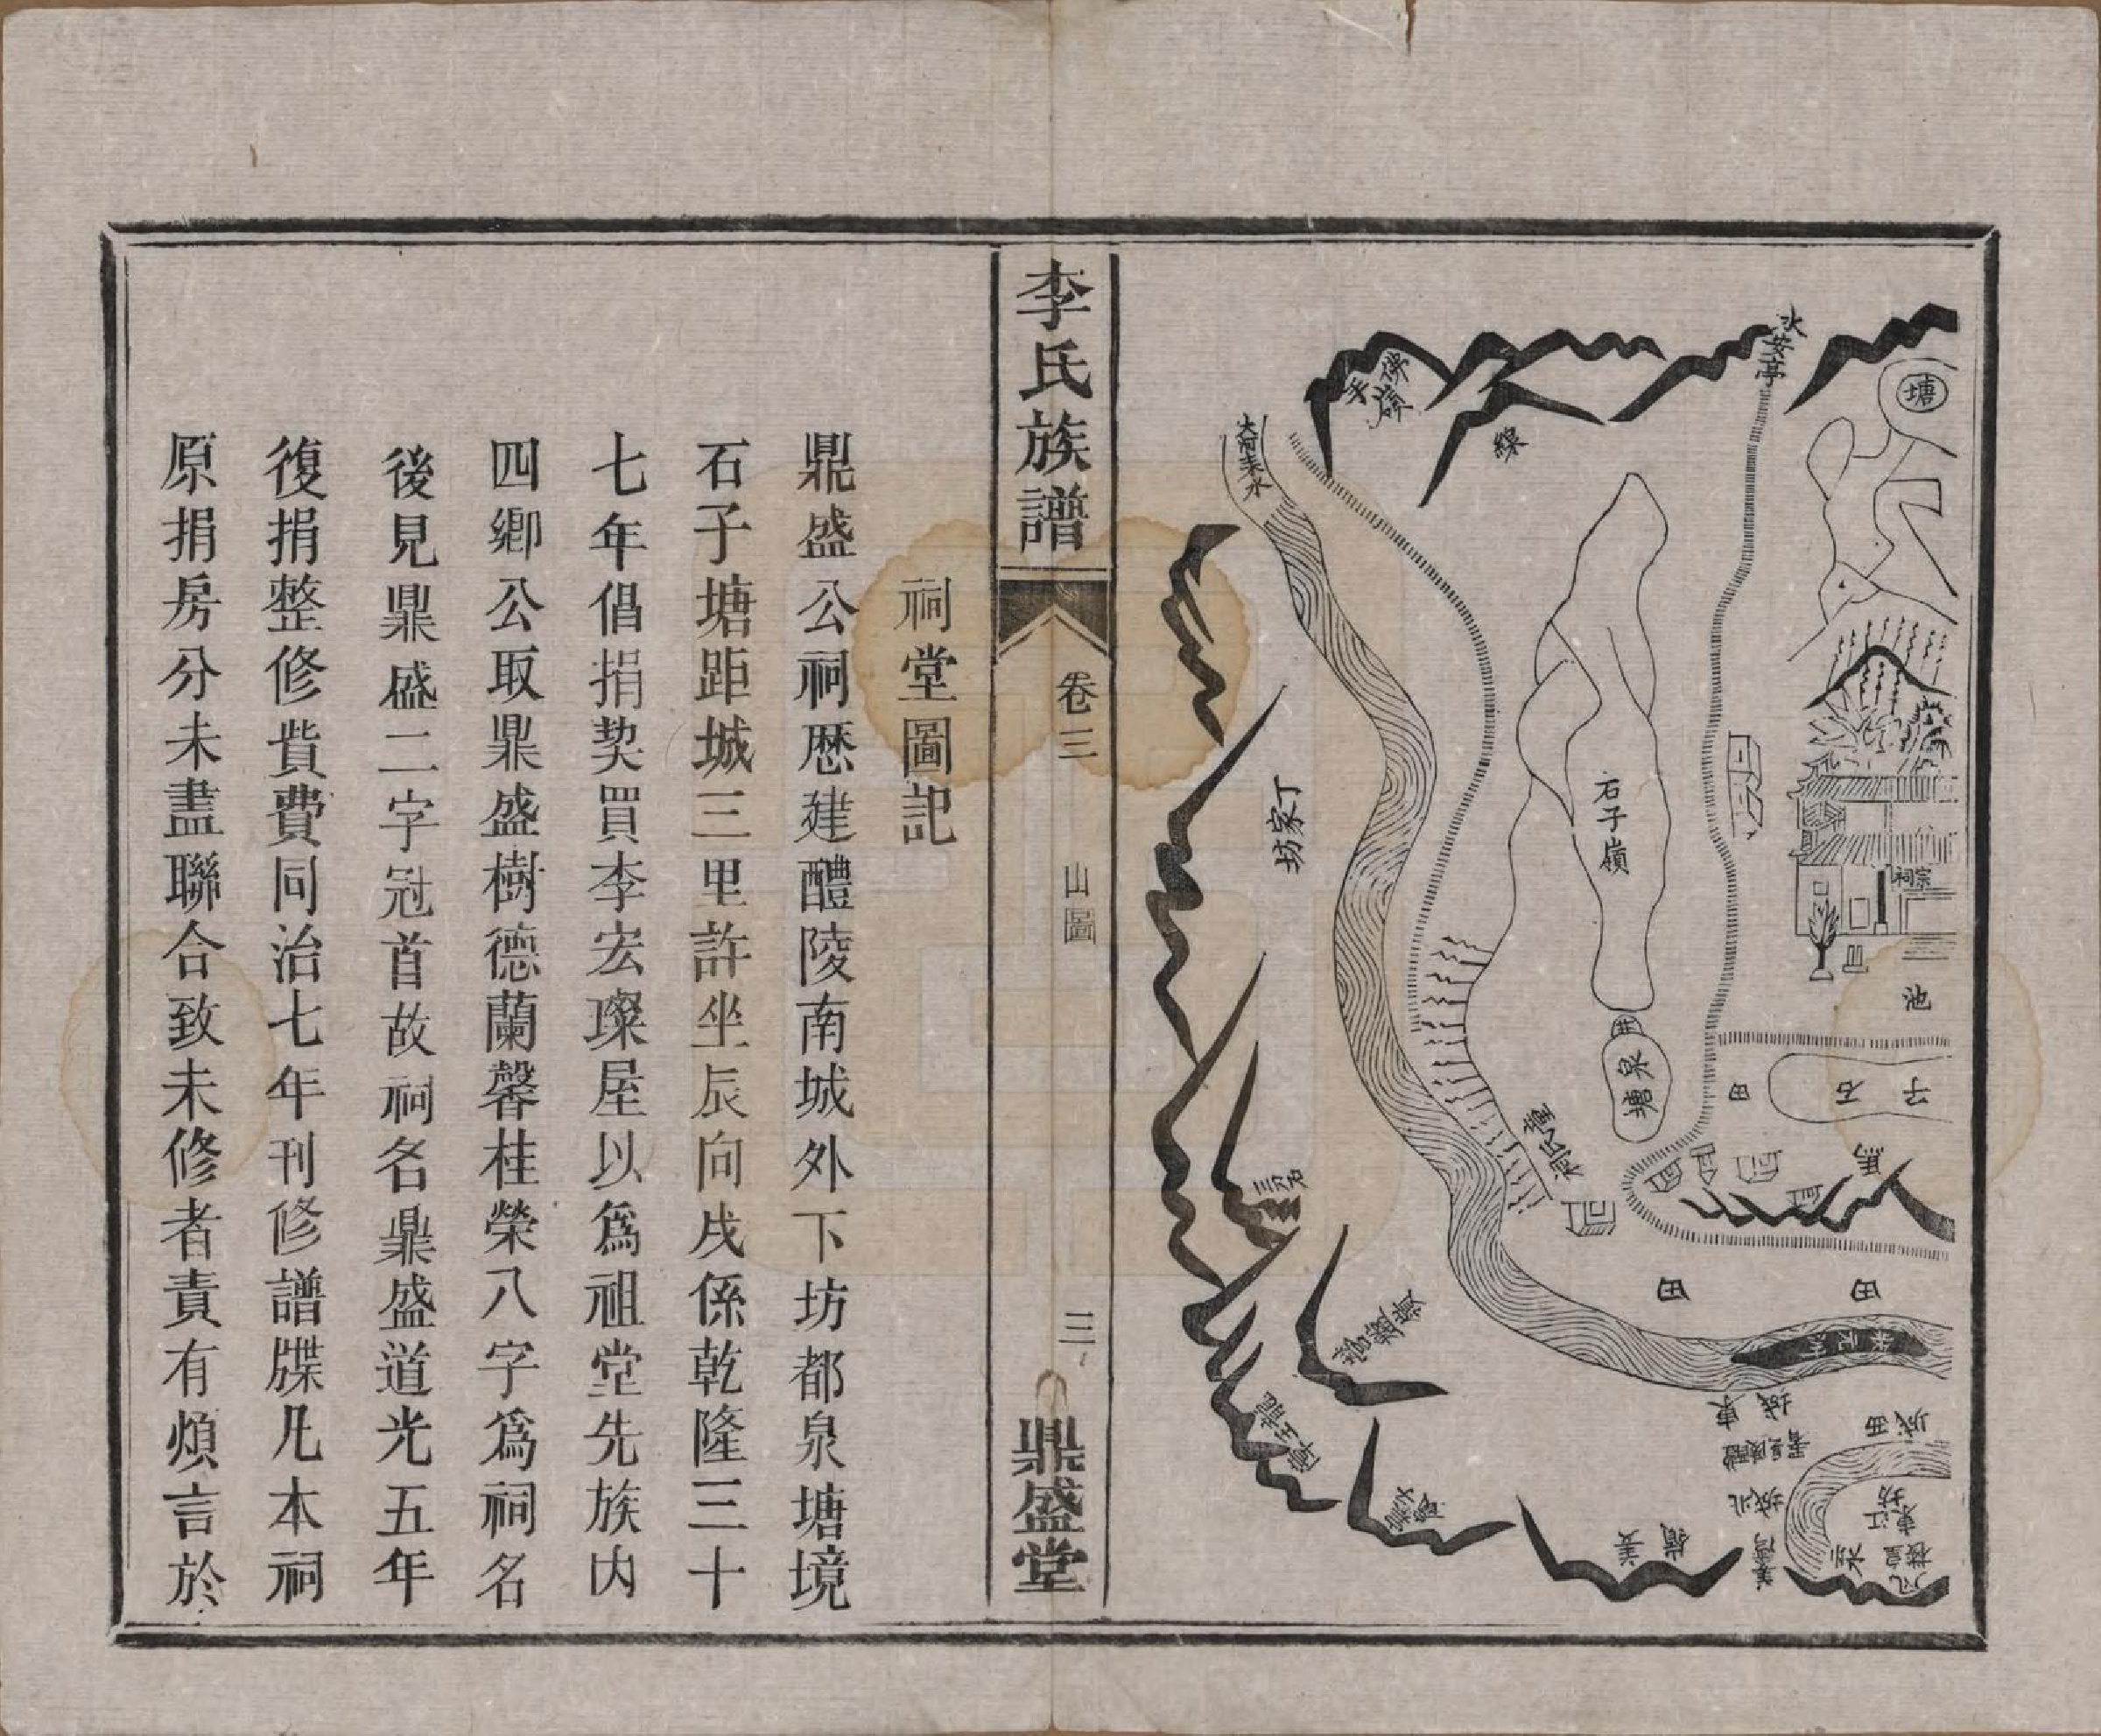 水安亭
塘
佛手嶺
線
大河來水
丁家坊
石子嶺
宗祠
池
井
泉塘
田
石子
馬
田
田
城東
醴陵縣署
城北
城西
東江坊
姜嶺
姜灣
李氏族譜
卷三
山圖
三
鼎盛堂
祠堂圖記
鼎盛公祠歷建醴陵南城外下坊都泉塘境
石子塘距城三里許坐辰向戌係乾隆三十
七年倡捐契買李宏璨屋以爲祖堂先族内
四卿公取鼎盛樹德蘭馨桂榮八字爲祠名
後見鼎盛二字冠首故祠名鼎盛道光五年
復捐整修貲費同治七年刊修譜牒凡本祠
原捐房分未盡聯合致未修者責有煩言於